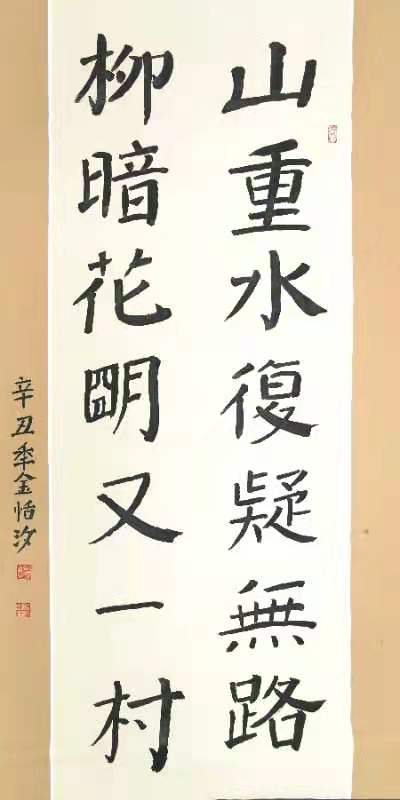 山重水復疑無路
柳暗花明又一村
辛丑年金恬汐